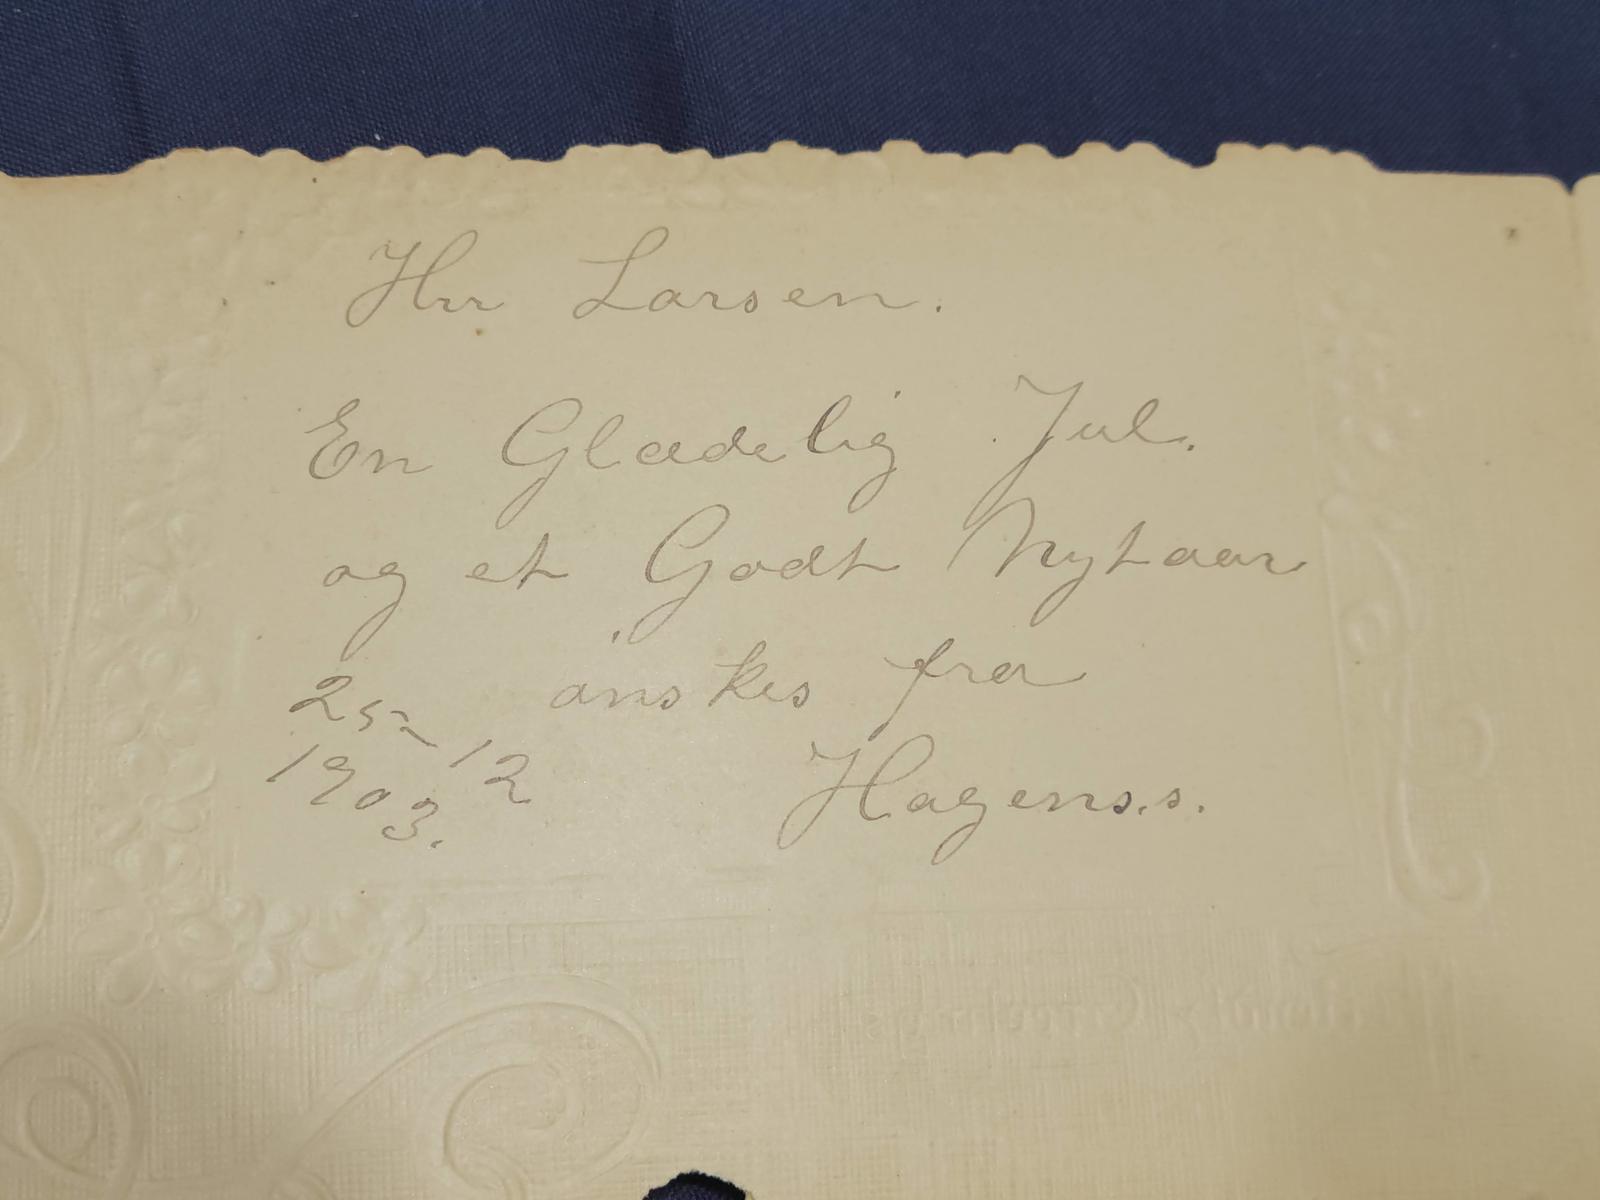 Hrr Larsen.
En Glædelig Jul.
og et Godt Nytaar
ønskes fra
25-12
1903.
Hagens.s.